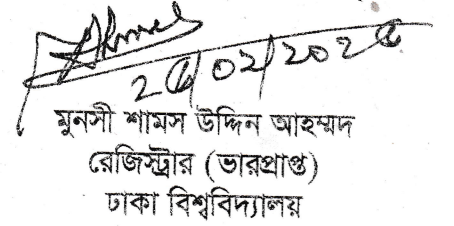 ২৫/০২/২০২৫
মুনসী শামস উদ্দিন আহম্মদ
রেজিস্ট্রার (ভারপ্রাপ্ত)
ঢাকা বিশ্ববিদ্যালয়